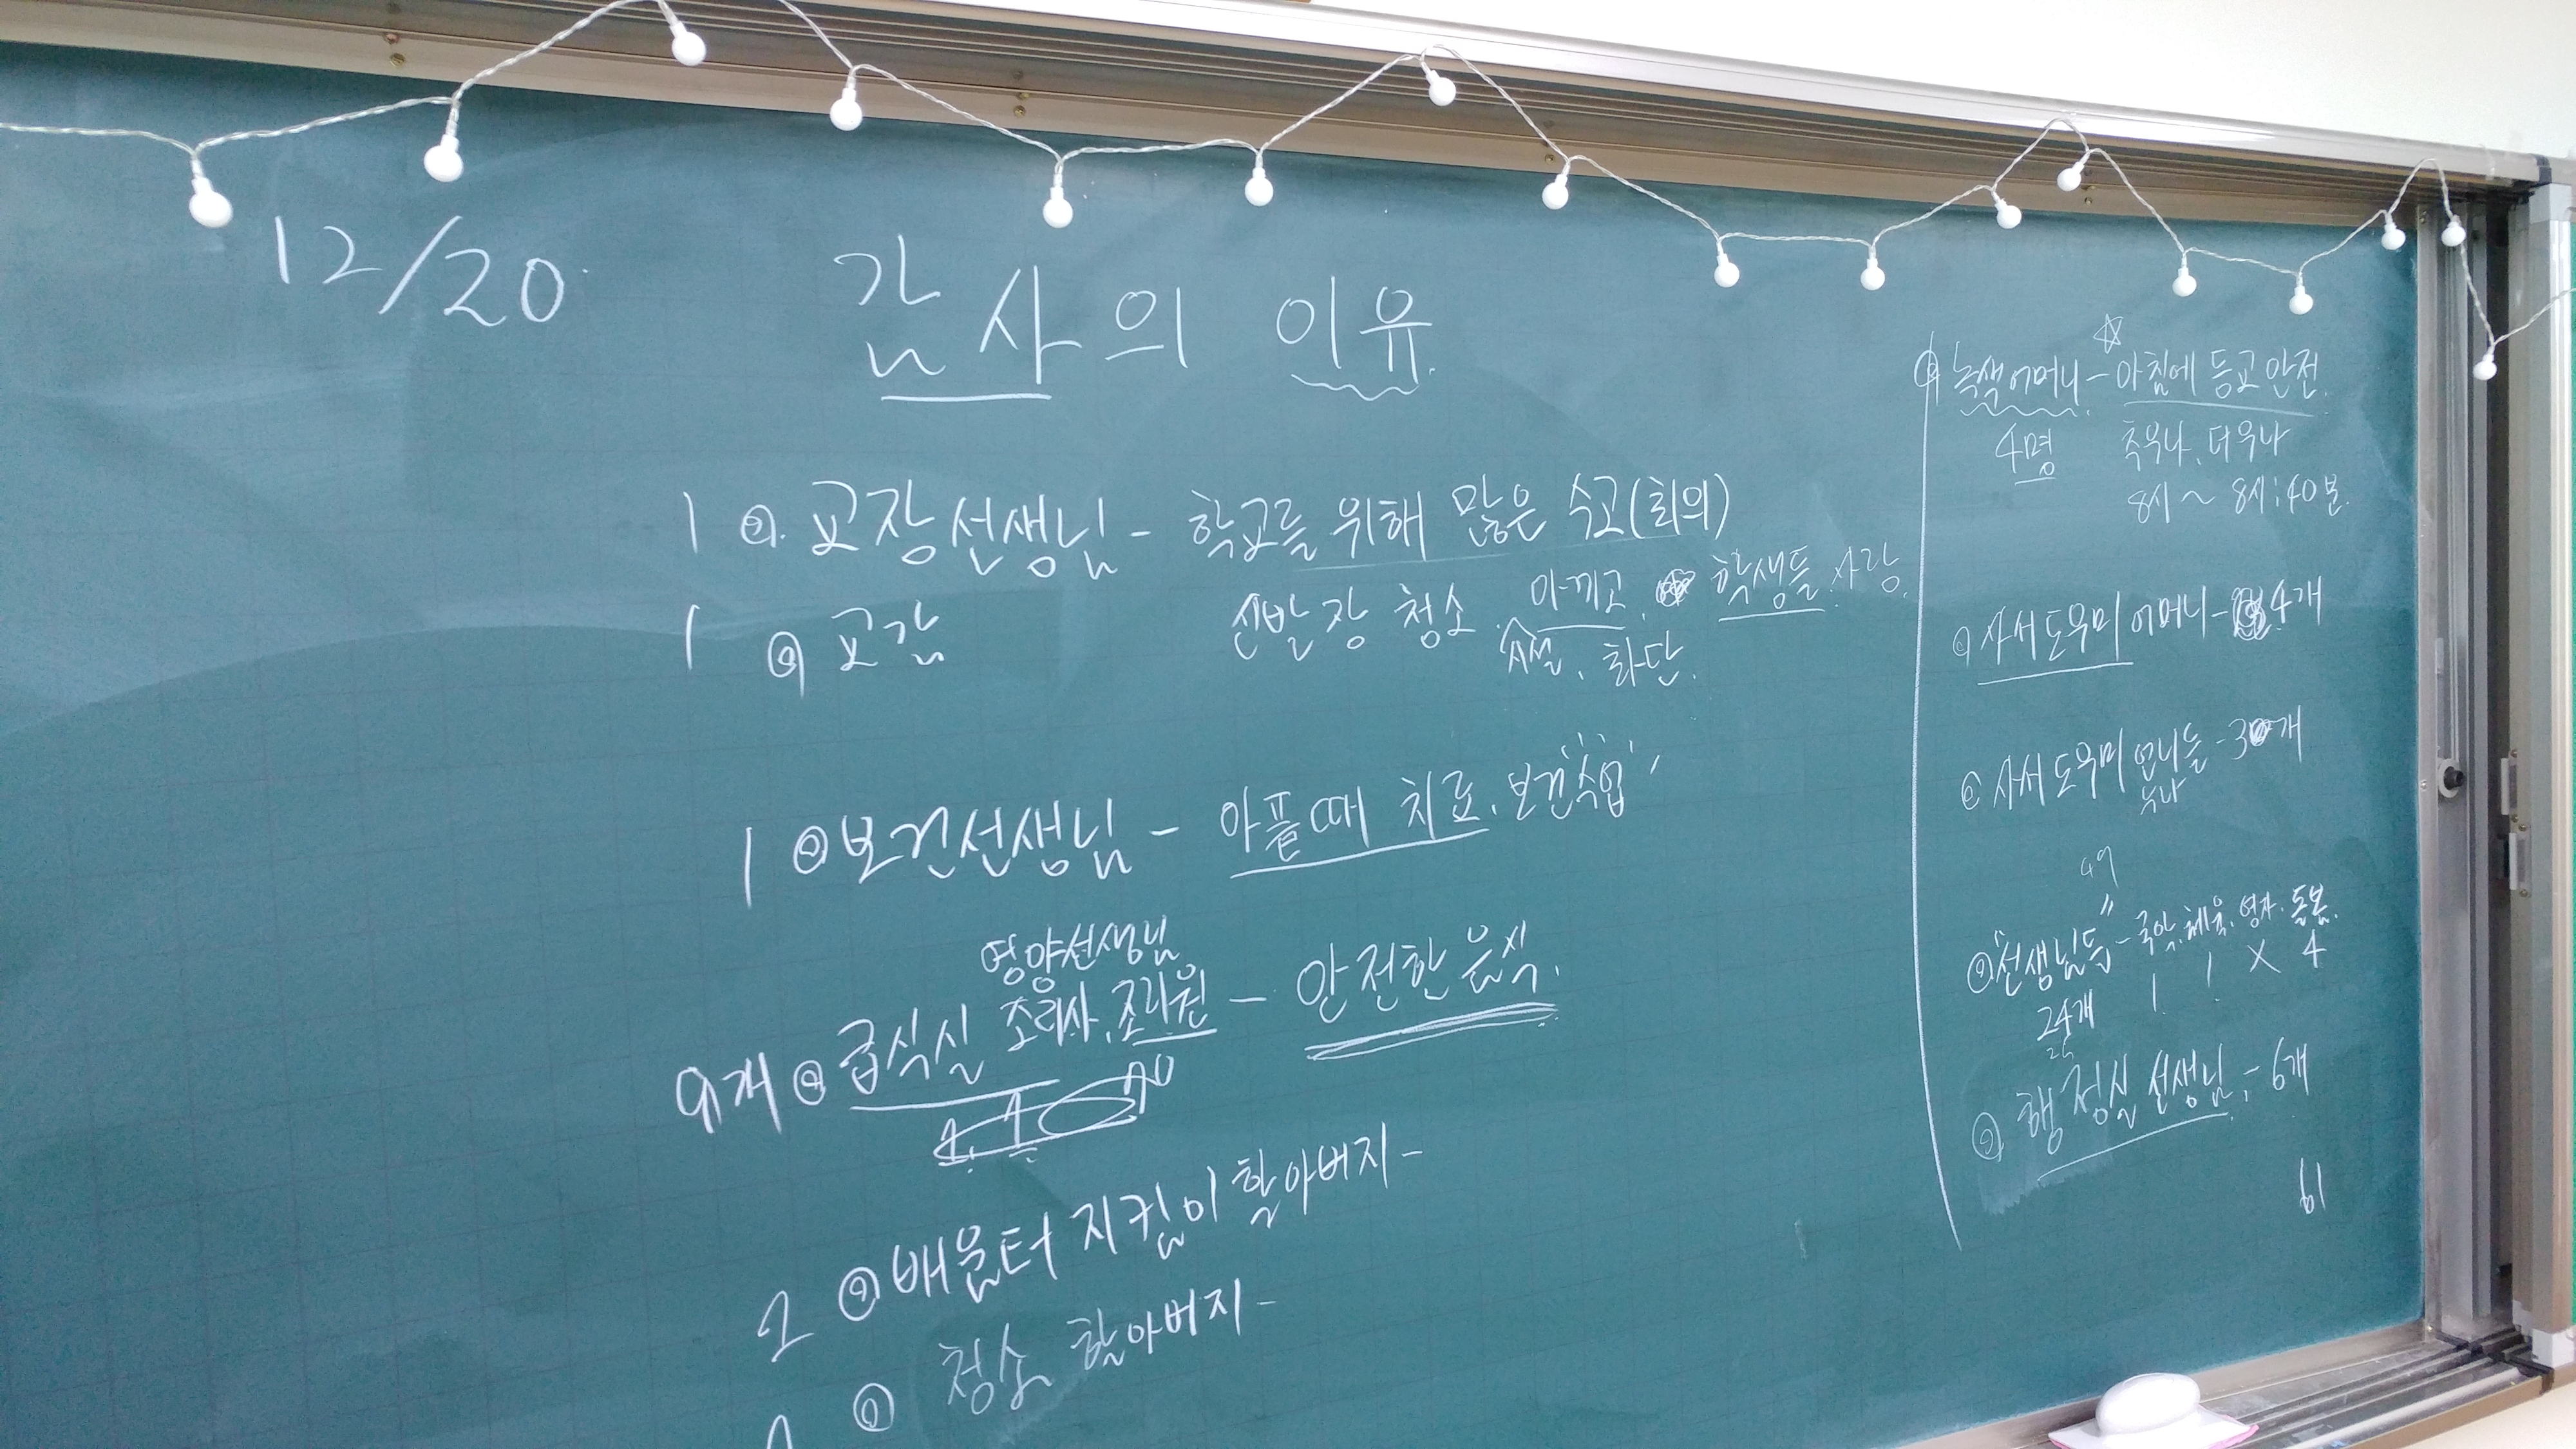 12/20.
감사의 이유.
1 ◎ 교장선생님 - 학교를 위해 많은 수고(회의)
신발장 청소. 아끼고, 학생들 사랑.
시설, 화단.
1 ◎ 교감
1 ◎ 보건선생님 - 아플때 치료, 보건수업
영양선생님
조리사, 조리원
9개 ◎ 급식실 - 안전한 음식.
1 1
2 ◎ 배움터 지킴이 할아버지 -
1 ◎ 청소 할아버지 -
◎ 녹색어머니 - ☆ 아침에 등교 안전.
4명 추우나, 더우나
8시 ~ 8시:40분.
◎ 사서도우미 어머니 - 4개
◎ 사서도우미 언니들 - 3개
누나
◎ "선생님들" - 국악, 체육, 영자, 돌봄.
24개 1 1 X 4
◎ 행정실 선생님 - 6개
61